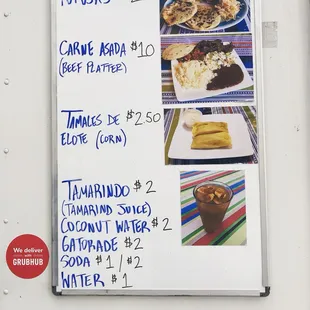 CARNE ASADA $10
(BEEF PLATTER)
TAMALES DE $2.50
ELOTE (CORN)
TAMARINDO $2
(TAMARIND JUICE)
COCONUT WATER $2
GATORADE $2
SODA $1/$2
WATER $1
We deliver
with
GRUBHUB